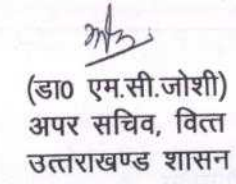 (डा0 एम.सी.जोशी)
अपर सचिव, वित्त
उत्तराखण्ड शासन